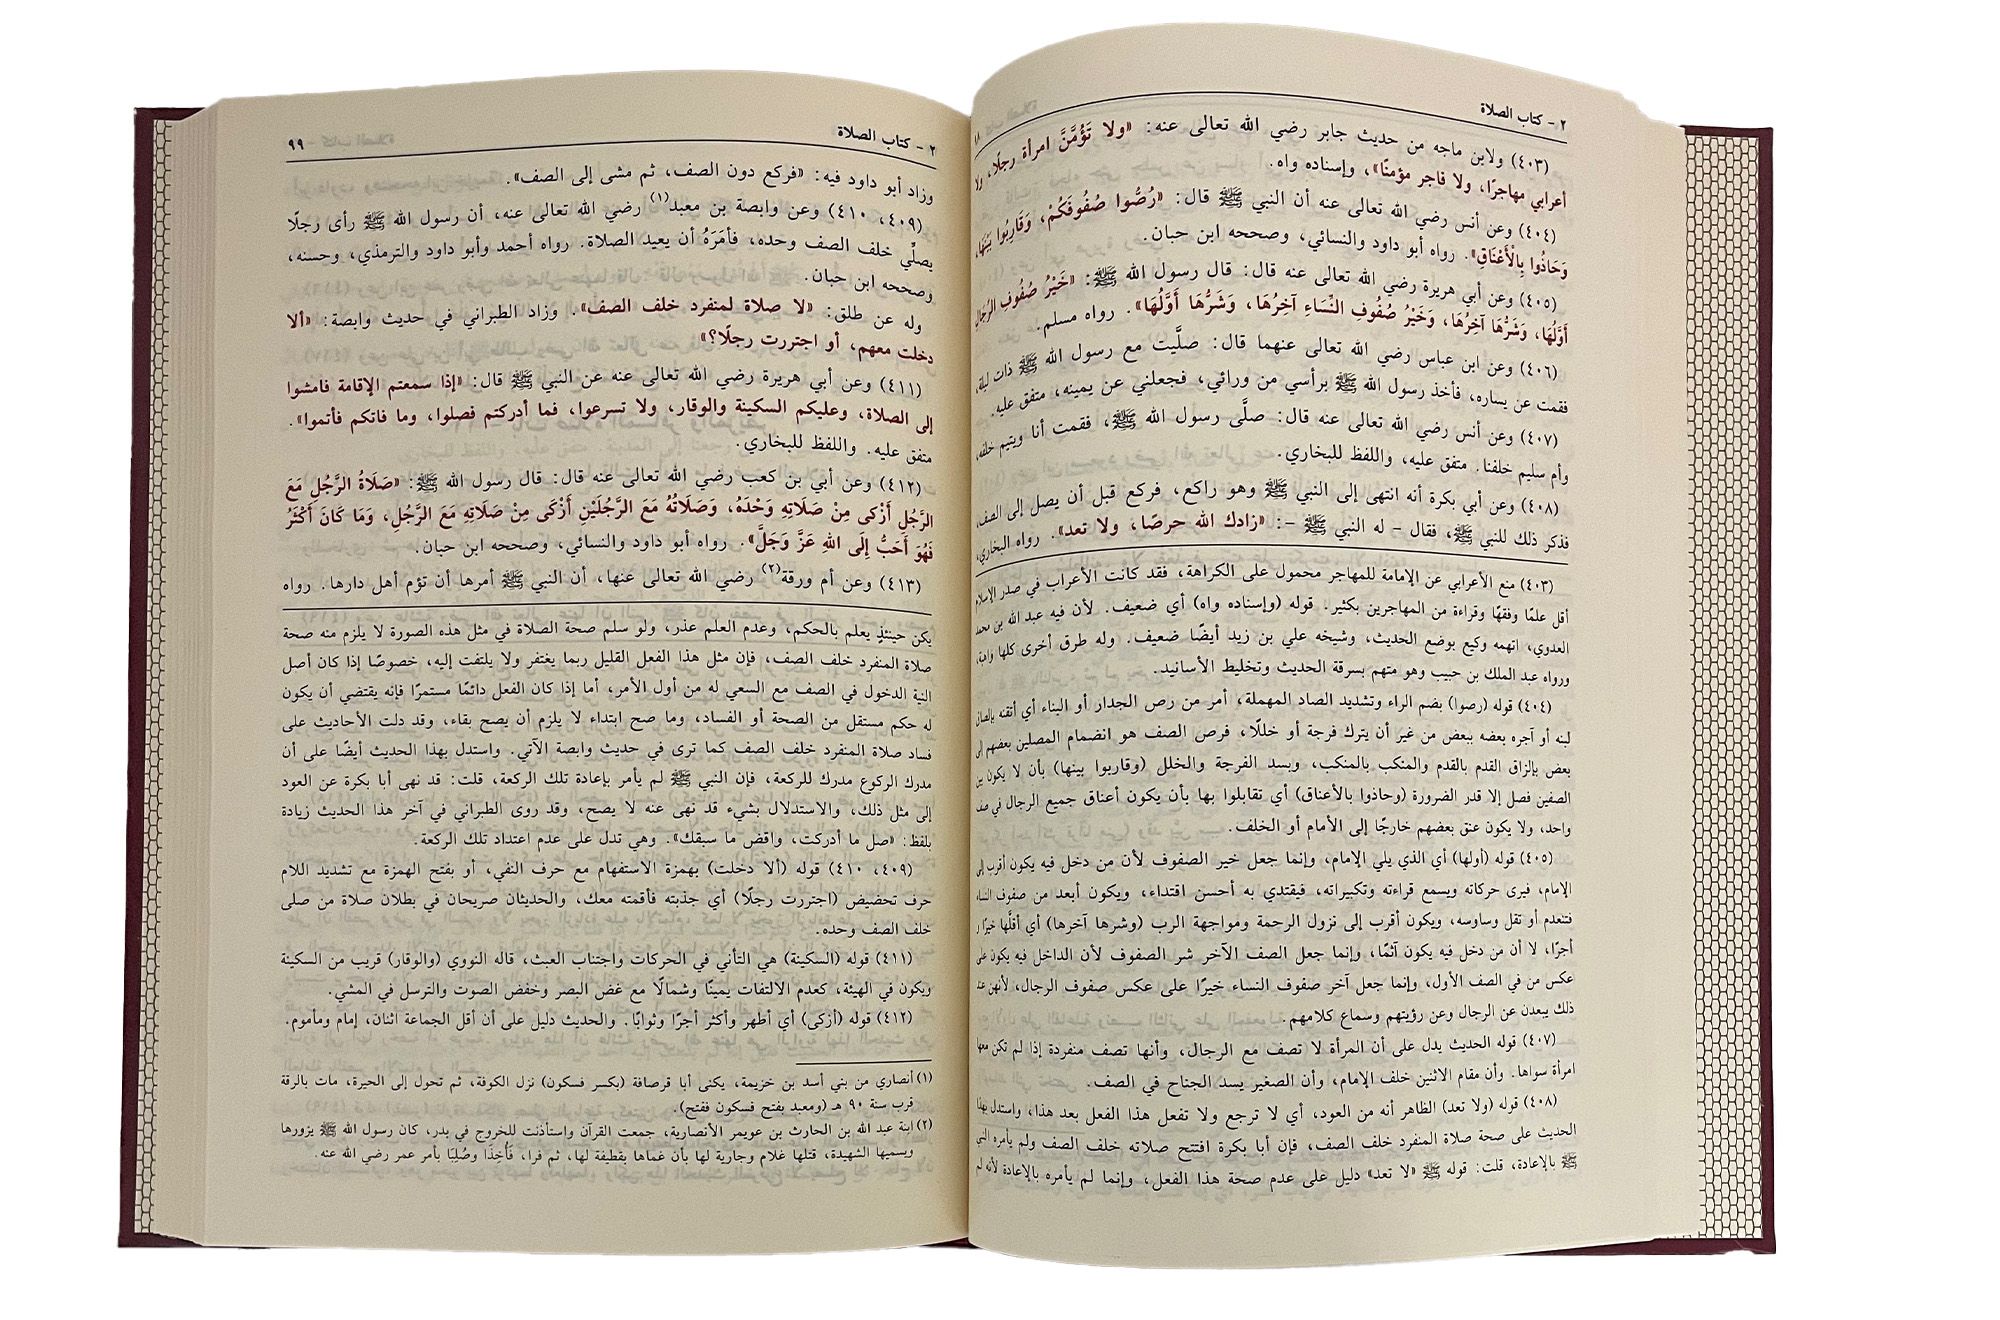 ٢ - كتاب الصلاة
(٤٠٣) ولابن ماجه من حديث جابر رضي الله تعالى عنه: «ولا تَؤُمَّنَّ امرأة رجلًا، ولا
أعرابي مهاجرًا، ولا فاجر مؤمنًا»، وإسناده واه.
(٤٠٤) وعن أنس رضي الله تعالى عنه أن النبي ﷺ قال: «رُصُّوا صُفُوفَكُمْ، وَقَارِبُوا بَيْنَهَا،
وَحَاذُوا بِالْأَعْنَاقِ». رواه أبو داود والنسائي، وصححه ابن حبان.
(٤٠٥) وعن أبي هريرة رضي الله تعالى عنه قال: قال رسول الله ﷺ: «خَيْرُ صُفُوفِ الرِّجَالِ
أَوَّلُهَا، وَشَرُّهَا آخِرُهَا، وَخَيْرُ صُفُوفِ النِّسَاءِ آخِرُهَا، وَشَرُّهَا أَوَّلُهَا». رواه مسلم.
(٤٠٦) وعن ابن عباس رضي الله تعالى عنهما قال: صلَّيت مع رسول الله ﷺ ذات ليلة،
فقمت عن يساره، فأخذ رسول الله ﷺ برأسي من ورائي، فجعلني عن يمينه، متفق عليه.
(٤٠٧) وعن أنس رضي الله تعالى عنه قال: صلَّى رسول الله ﷺ، فقمت أنا ويتيم خلفه،
وأم سليم خلفنا. متفق عليه، واللفظ للبخاري.
(٤٠٨) وعن أبي بكرة أنه انتهى إلى النبي ﷺ وهو راكع، فركع قبل أن يصل إلى الصف،
فذكر ذلك للنبي ﷺ، فقال - له النبي ﷺ -: «زادك الله حرصًا، ولا تعد». رواه البخاري،
(٤٠٣) منع الأعرابي عن الإمامة للمهاجر محمول على الكراهة، فقد كانت الأعراب في صدر الإسلام
أقل علمًا وفقهًا وقراءة من المهاجرين بكثير. قوله (وإسناده واه) أي ضعيف. لأن فيه عبد الله بن محمد
العدوي، اتهمه وكيع بوضع الحديث، وشيخه علي بن زيد أيضًا ضعيف. وله طرق أخرى كلها واهية،
ورواه عبد الملك بن حبيب وهو متهم بسرقة الحديث وتخليط الأسانيد.
(٤٠٤) قوله (رصوا) بضم الراء وتشديد الصاد المهملة، أمر من رص الجدار أو البناء أي أتقنه بإلصاق
لبنه أو آجره بعضه ببعض من غير أن يترك فرجة أو خللًا، فرص الصف هو انضمام المصلين بعضهم إلى
بعض بإلزاق القدم بالقدم والمنكب بالمنكب، وبسد الفرجة والخلل (وقاربوا بينها) بأن لا يكون بين
الصفين فصل إلا قدر الضرورة (وحاذوا بالأعناق) أي تقابلوا بها بأن يكون أعناق جميع الرجال في صف
واحد، ولا يكون عنق بعضهم خارجًا إلى الأمام أو الخلف.
(٤٠٥) قوله (أولها) أي الذي يلي الإمام، وإنما جعل خير الصفوف لأن من دخل فيه يكون أقرب إلى
الإمام، فيرى حركاته ويسمع قراءته وتكبيراته، فيقتدي به أحسن اقتداء، ويكون أبعد من صفوف النساء
فتنعدم أو تقل وساوسه، ويكون أقرب إلى نزول الرحمة ومواجهة الرب (وشرها آخرها) أي أقلَّها خيرًا و
أجرًا، لا أن من دخل فيه يكون آثمًا، وإنما جعل الصف الآخر شر الصفوف لأن الداخل فيه يكون على
عكس من في الصف الأول، وإنما جعل آخر صفوف النساء خيرًا على عكس صفوف الرجال، لأنهن عند
ذلك يبعدن عن الرجال وعن رؤيتهم وسماع كلامهم.
(٤٠٧) قوله الحديث يدل على أن المرأة لا تصف مع الرجال، وأنها تصف منفردة إذا لم تكن معها
امرأة سواها. وأن مقام الاثنين خلف الإمام، وأن الصغير يسد الجناح في الصف.
(٤٠٨) قوله (ولا تعد) الظاهر أنه من العود، أي لا ترجع ولا تفعل هذا الفعل بعد هذا، واستدل بهذا
الحديث على صحة صلاة المنفرد خلف الصف، فإن أبا بكرة افتتح صلاته خلف الصف ولم يأمره النبي
ﷺ بالإعادة، قلت: قوله ﷺ «لا تعد» دليل على عدم صحة هذا الفعل، وإنما لم يأمره بالإعادة لأنه لم
٢ - كتاب الصلاة ٩٩
وزاد أبو داود فيه: «فركع دون الصف، ثم مشى إلى الصف».
(٤٠٩، ٤١٠) وعن وابصة بن معبد(١) رضي الله تعالى عنه، أن رسول الله ﷺ رأى رجلًا
يصلِّي خلف الصف وحده، فأمَرَهُ أن يعيد الصلاة. رواه أحمد وأبو داود والترمذي، وحسنه،
وصححه ابن حبان.
وله عن طلق: «لا صلاة لمنفرد خلف الصف». وزاد الطبراني في حديث وابصة: «ألا
دخلت معهم، أو اجتررت رجلًا؟»
(٤١١) وعن أبي هريرة رضي الله تعالى عنه عن النبي ﷺ قال: «إذا سمعتم الإقامة فامشوا
إلى الصلاة، وعليكم السكينة والوقار، ولا تسرعوا، فما أدركتم فصلوا، وما فاتكم فأتموا».
متفق عليه. واللفظ للبخاري.
(٤١٢) وعن أبيّ بن كعب رضي الله تعالى عنه قال: قال رسول الله ﷺ: «صَلَاةُ الرَّجُلِ مَعَ
الرَّجُلِ أَزْكَى مِنْ صَلَاتِهِ وَحْدَهُ، وَصَلَاتُهُ مَعَ الرَّجُلَيْنِ أَزْكَى مِنْ صَلَاتِهِ مَعَ الرَّجُلِ، وَمَا كَانَ أَكْثَرُ
فَهُوَ أَحَبُّ إلَى اللهِ عَزَّ وَجَلَّ». رواه أبو داود والنسائي، وصححه ابن حبان.
(٤١٣) وعن أم ورقة(٢) رضي الله تعالى عنها، أن النبي ﷺ أمرها أن تؤم أهل دارها. رواه
يكن حينئذٍ يعلم بالحكم، وعدم العلم عذر، ولو سلم صحة الصلاة في مثل هذه الصورة لا يلزم منه صحة
صلاة المنفرد خلف الصف، فإن مثل هذا الفعل القليل ربما يغتفر ولا يلتفت إليه، خصوصًا إذا كان أصل
النية الدخول في الصف مع السعي له من أول الأمر، أما إذا كان الفعل دائمًا مستمرًا فإنه يقتضي أن يكون
له حكم مستقل من الصحة أو الفساد، وما صح ابتداء لا يلزم أن يصح بقاء، وقد دلت الأحاديث على
فساد صلاة المنفرد خلف الصف كما ترى في حديث وابصة الآتي. واستدل بهذا الحديث أيضًا على أن
مدرك الركوع مدرك للركعة، فإن النبي ﷺ لم يأمر بإعادة تلك الركعة، قلت: قد نهى أبا بكرة عن العود
إلى مثل ذلك، والاستدلال بشيء قد نهى عنه لا يصح، وقد روى الطبراني في آخر هذا الحديث زيادة
بلفظ: «صل ما أدركت، واقض ما سبقك». وهي تدل على عدم اعتداد تلك الركعة.
(٤٠٩، ٤١٠) قوله (ألا دخلت) بهمزة الاستفهام مع حرف النفي، أو بفتح الهمزة مع تشديد اللام
حرف تحضيض (اجتررت رجلًا) أي جذبته فأقمته معك، والحديثان صريحان في بطلان صلاة من صلى
خلف الصف وحده.
(٤١١) قوله (السكينة) هي التأني في الحركات واجتناب العبث، قاله النووي (والوقار) قريب من السكينة
ويكون في الهيئة، كعدم الالتفات يمينًا وشمالًا مع غض البصر وخفض الصوت والترسل في المشي.
(٤١٢) قوله (أزكى) أي أطهر وأكثر أجرًا وثوابًا. والحديث دليل على أن أقل الجماعة اثنان، إمام ومأموم.
(١) أنصاري من بني أسد بن خزيمة، يكنى أبا قرصافة (بكسر فسكون) نزل الكوفة، ثم تحول إلى الحيرة، مات بالرقة
قرب سنة ٩٠ هـ (ومعبد بفتح فسكون ففتح).
(٢) ابنة عبد الله بن الحارث بن عويمر الأنصارية، جمعت القرآن واستأذنت للخروج في بدر، كان رسول الله ﷺ يزورها
ويسميها الشهيدة، قتلها غلام وجارية لها بأن غماها بقطيفة لها، ثم فرا، فَأُخِذَا وصُلِبَا بأمر عمر رضي الله عنه.